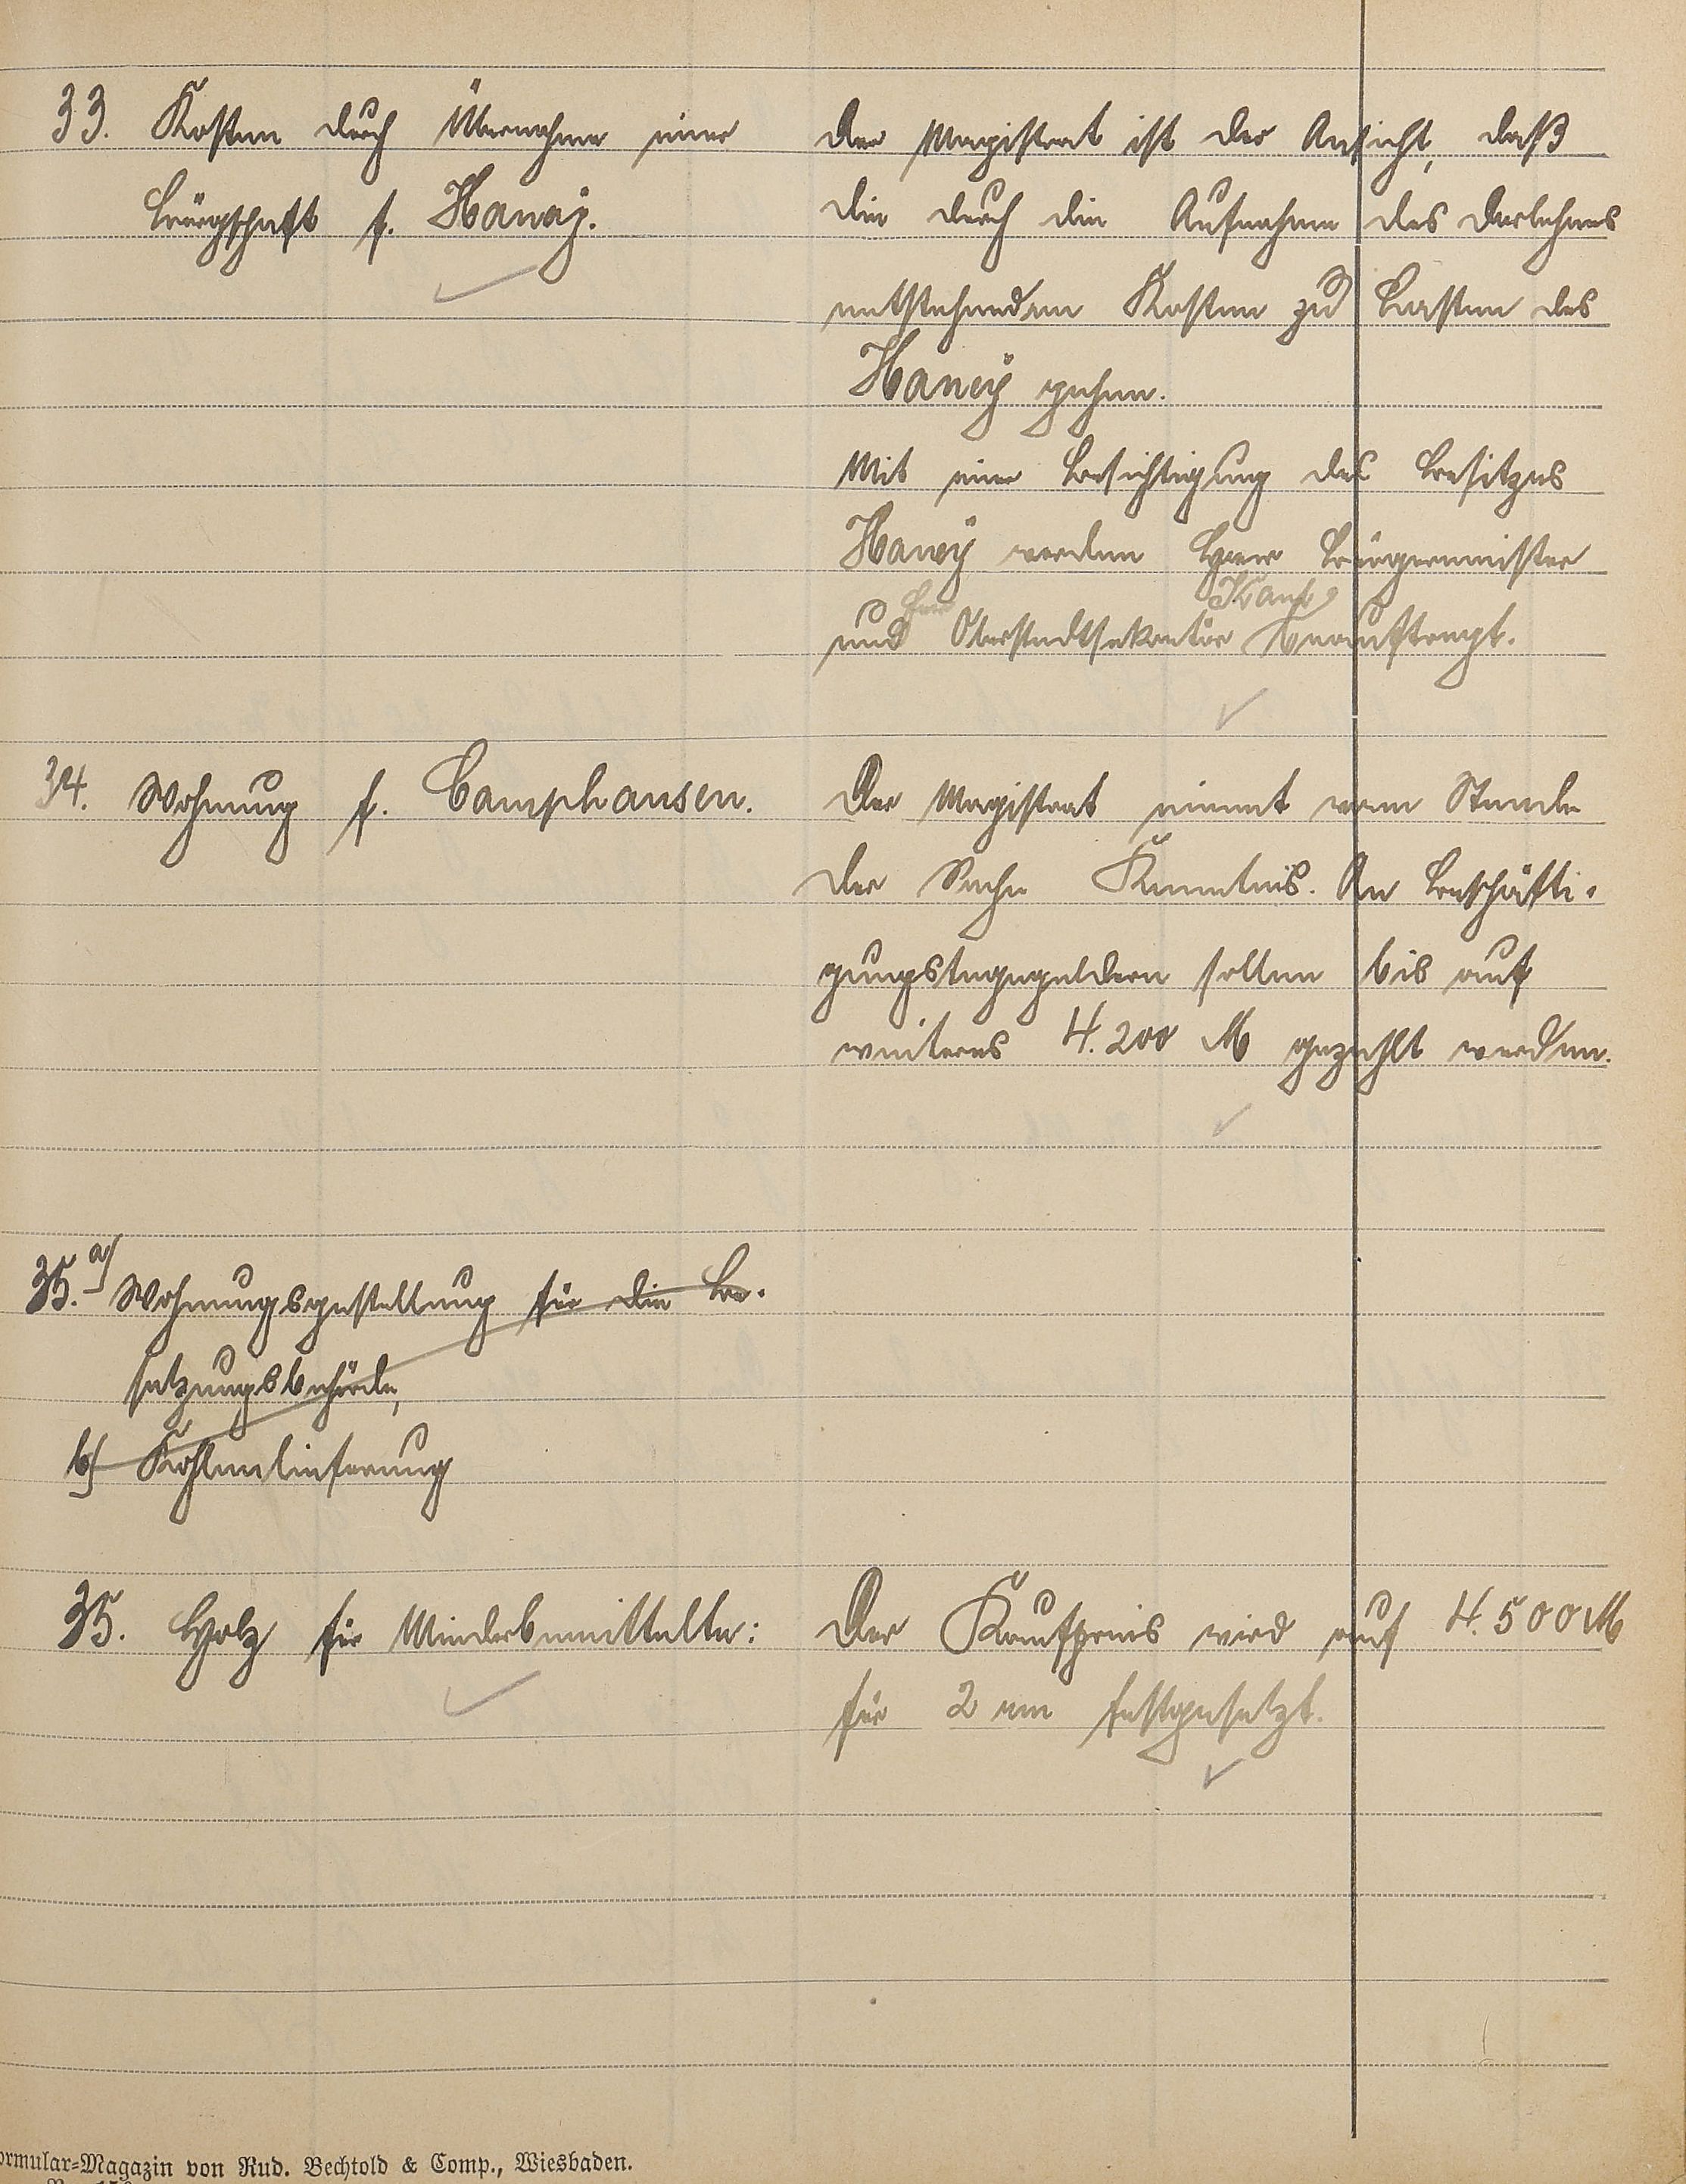 33. Kosten durch Übernahme einer
Bürgschaft f. Hanaÿ.
Der Magistrat ist der Ansicht, daß
die durch die Aufnahme des Darlehnes
entstehenden Kosten zu Lasten des
Haneÿ gehen.
Mit einer Besichtigung des Besitzes
Haneÿ werden Herr Bürgermeister
und Herr Oberstadtsekretär Kranz beauftragt.
34. Wohnung f. Camphausen.
Der Magistrat nimmt vom Stande
der Sache Kenntnis. An Beschäfti-
gungstagegeldern sollen bis auf
weiteres 4.200 M gezahlt werden.
35. a) Wohnungsgestellung für die Be-
satzungsbehörde,
b) Kohlenlieferung
35. Holz für Minderbemittelte:
Der Kaufpreis wird auf 4.500 M
für 2 rm festgesetzt.
ormular-Magazin von Rud. Bechtold & Comp., Wiesbaden.